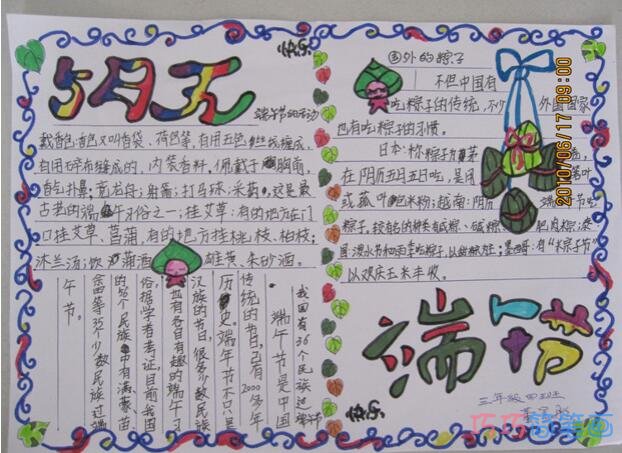 五月五
快乐
端午节的活动
戴香包:香包又叫香袋、荷包等,有用五色丝线缠成,
有用碎布缝成的,内装香料,佩戴于胸前,
香气扑鼻;赛龙舟;射箭;打马球;采药,这是最
古老的端午习俗之一;挂艾草:有的地方在门
口挂艾草、菖蒲,有的地方挂桃枝、柏枝;
沐兰汤;饮蒲酒、雄黄、朱砂酒。
我国有36个民族过端午节
端午节是中国
传统的节日,已有2000多年
历史。端午节不只是
汉族的节日,很多少数民族
也有各自有趣的端午习
俗,据学者考证,目前我国
的56个民族中有满、蒙、苗
畲等35个少数民族过端
午节。
国外的粽子
不但中国有
吃粽子的传统,不少外国国家
也有吃粽子的习惯。
日本:称粽子为茅
在阴历五月五日吃,是用
或菰叶包米粉;越南:阴历端午节吃
粽子,
以欢庆玉米丰收。
端午节
快乐
三年级四班
巧巧简笔画
2010/06/17 09:00